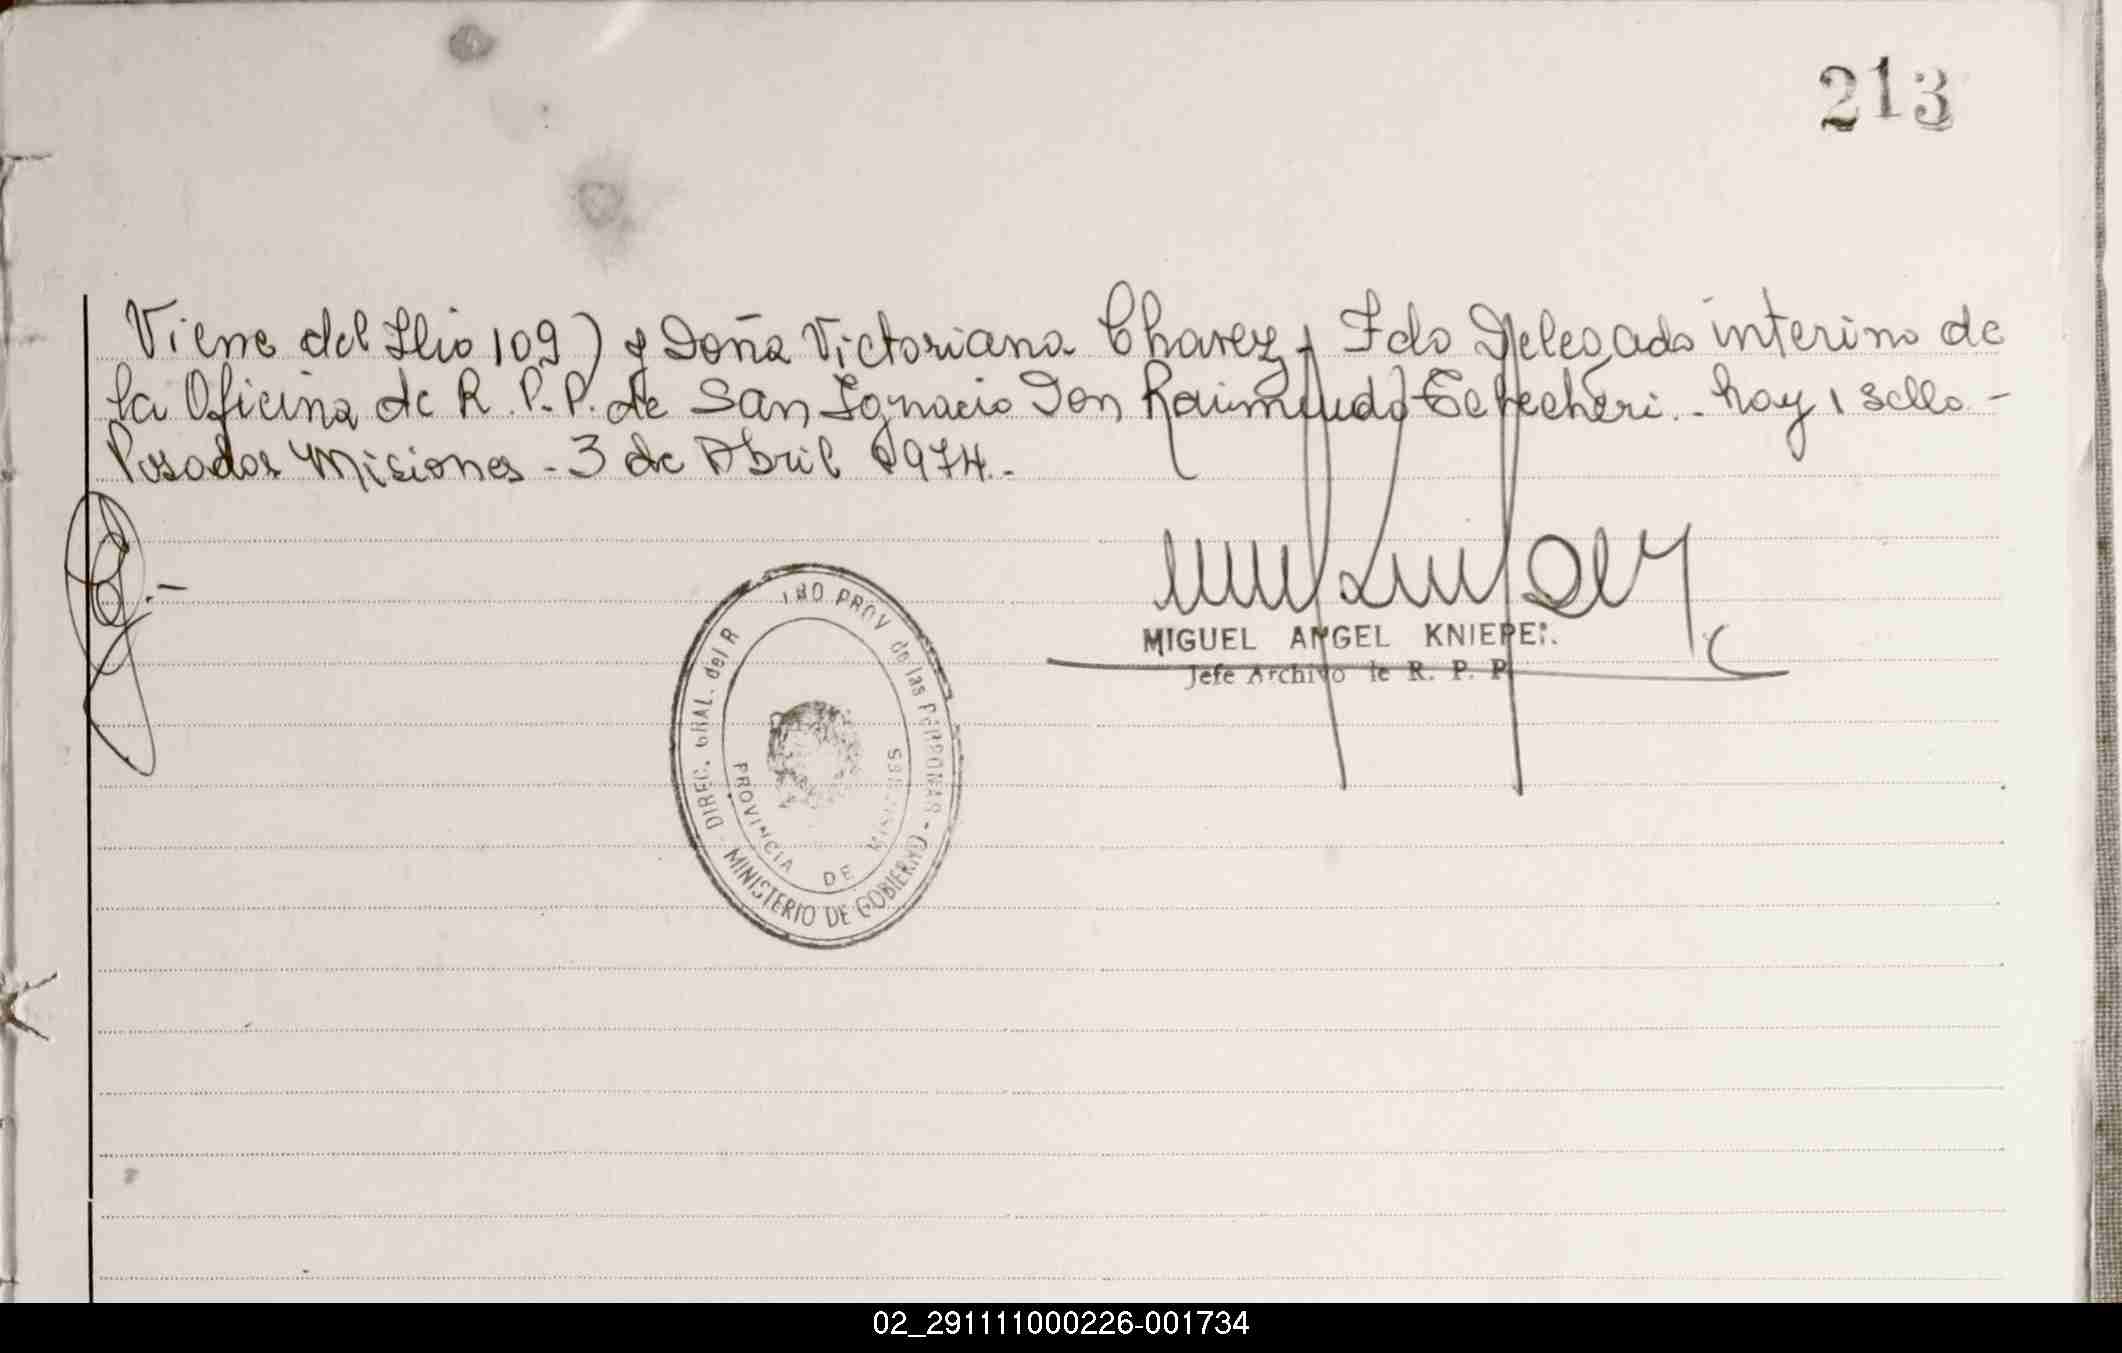 213
Viene del Flio 109) y Doña Victoriana Chavez, Fdo Delegado interino de
la Oficina de R.P.P. de San Ignacio Don Raimundo Echecheri.- hay 1 sello -
Posadas Misiones - 3 de Abril 1974.-
MIGUEL ANGEL KNIEPE
Jefe Archivo de R. P. P.
DIREC. GRAL. del R PROV de las PERSONAS - MINISTERIO DE GOBIERNO
PROVINCIA DE MISIONES
02_291111000226-001734